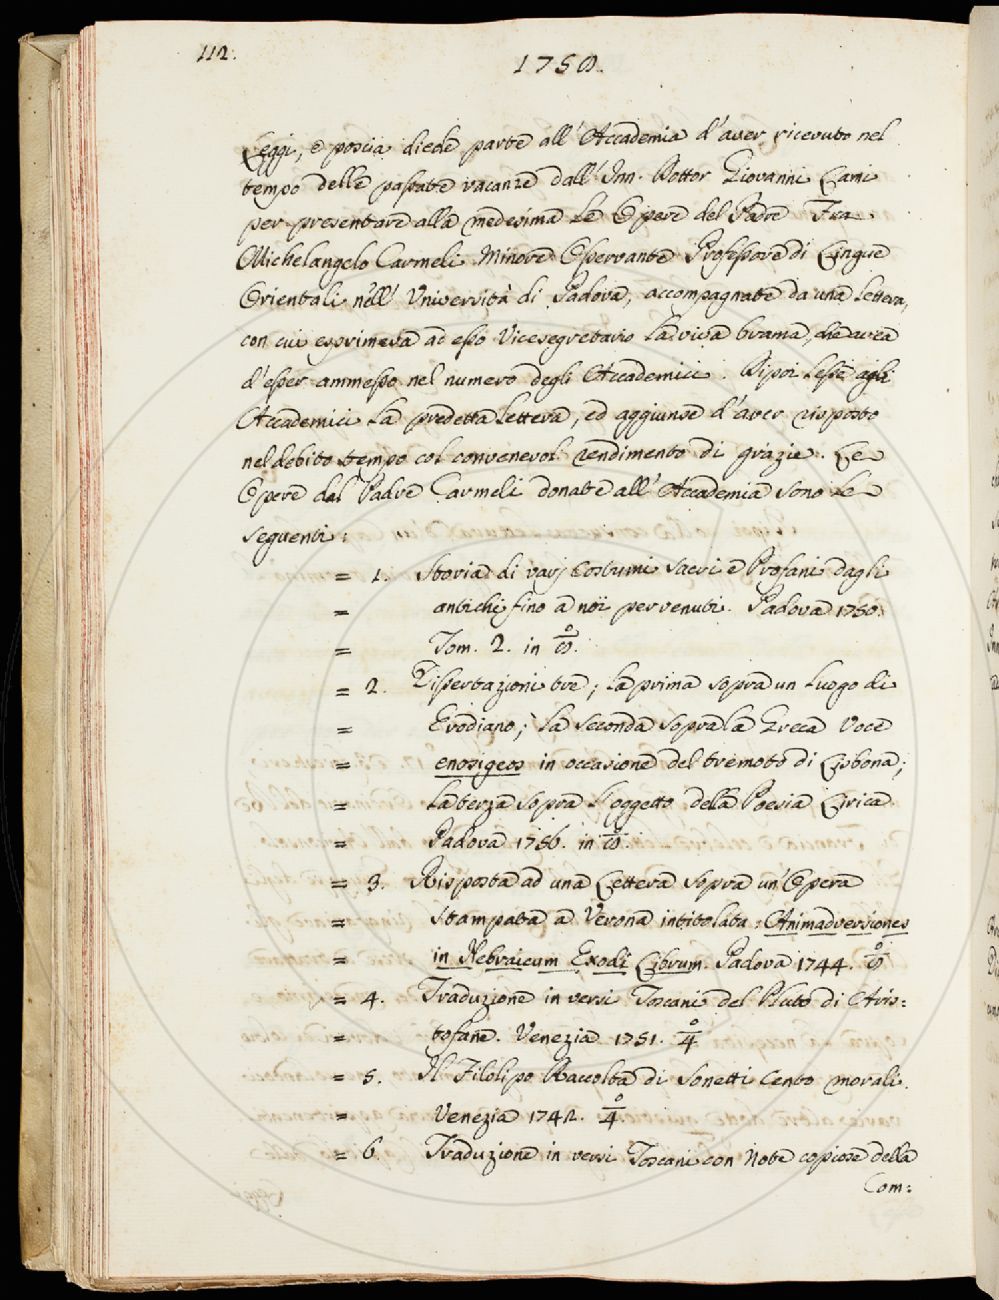 112.
1758.
Leggi, e poscia diede parte all' Accademia d'aver ricevuto nel
tempo delle passate vacanze dall' Inn. Dottor Giovanni Lami
per presentare alla medesima le Opere del Padre Fra
Michelangelo Carmeli Minore Osservante Professore di Lingue
Orientali nell' Università di Padova, accompagnate da una Lettera,
con cui esprimeva ad esso Vicesegretario la viva brama, che avea
d'esser ammesso nel numero degli Accademici. Dipoi lesse agli
Accademici la predetta Lettera, ed aggiunse d'aver risposto
nel debito tempo col convenevol rendimento di grazie. Le
Opere dal Padre Carmeli donate all' Accademia sono le
seguenti:
= 1. Storia di varj Costumi Sacri e Profani dagli
= antichi fino a noi pervenuti. Padova 1750.
= Tom. 2. in 8.º
= 2. Dissertazioni tre; la prima sopra un luogo di
= Erodiano; la seconda sopra la Greca Voce
= enosigeos in occasione del tremoto di Lisbona;
= la terza sopra l'oggetto della Poesia Lirica
= Padova 1756. in 8.º
= 3. Risposta ad una Lettera sopra un' Opera
= stampata a Verona intitolata: Animadversiones
= in Hebraicum Exodi Librum. Padova 1744. 8.º
= 4. Traduzione in versi Toscani del Pluto di Aris=
= tofane. Venezia 1751. 4.º
= 5. Il Filolipo Raccolta di Sonetti Cento morali.
= Venezia 1742. 4.º
= 6. Traduzione in versi Toscani con Note copiose della
Com: